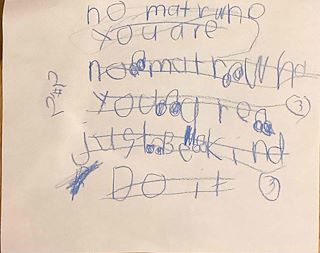 no matr who
you are
no matr who
you are
③
just Be kind
Do it
③